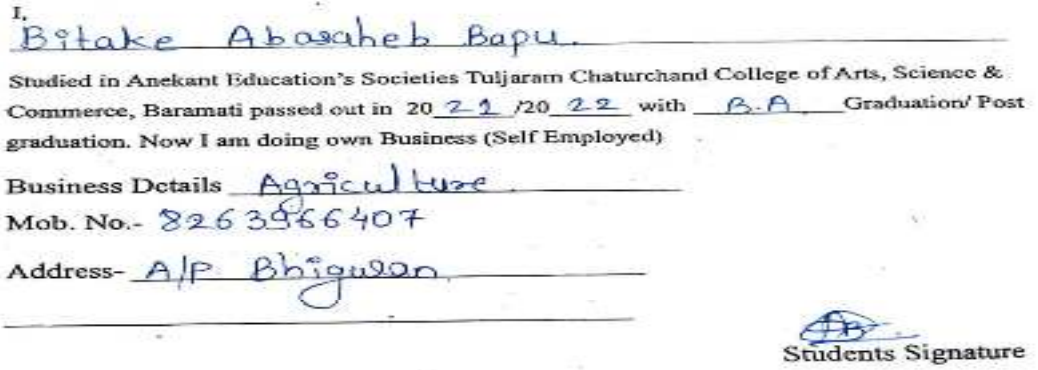 I,
Bitake Abasaheb Bapu.
Studied in Anekant Education's Societies Tuljaram Chaturchand College of Arts, Science &
Commerce, Baramati passed out in 20 21 /20 22 with B.A Graduation/ Post
graduation. Now I am doing own Business (Self Employed)
Business Details Agriculture.
Mob. No.- 8263966407
Address- A/P Bhigwan
Students Signature